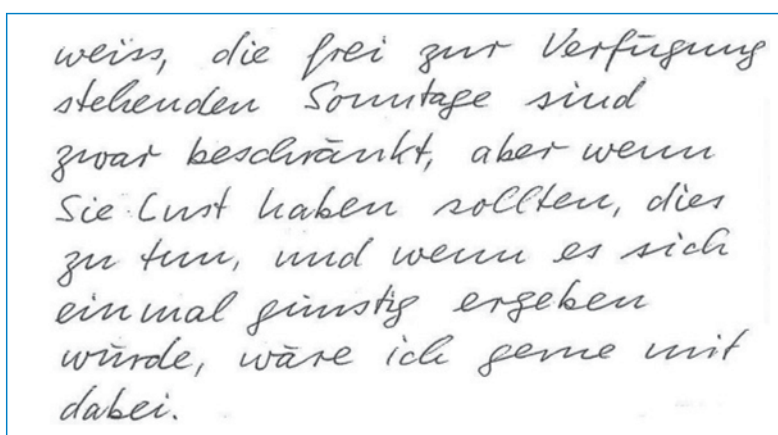 weiss, die frei zur Verfügung
stehenden Sonntage sind
zwar beschränkt, aber wenn
Sie Lust haben sollten, dies
zu tun, und wenn es sich
einmal günstig ergeben
würde, wäre ich gerne mit
dabei.